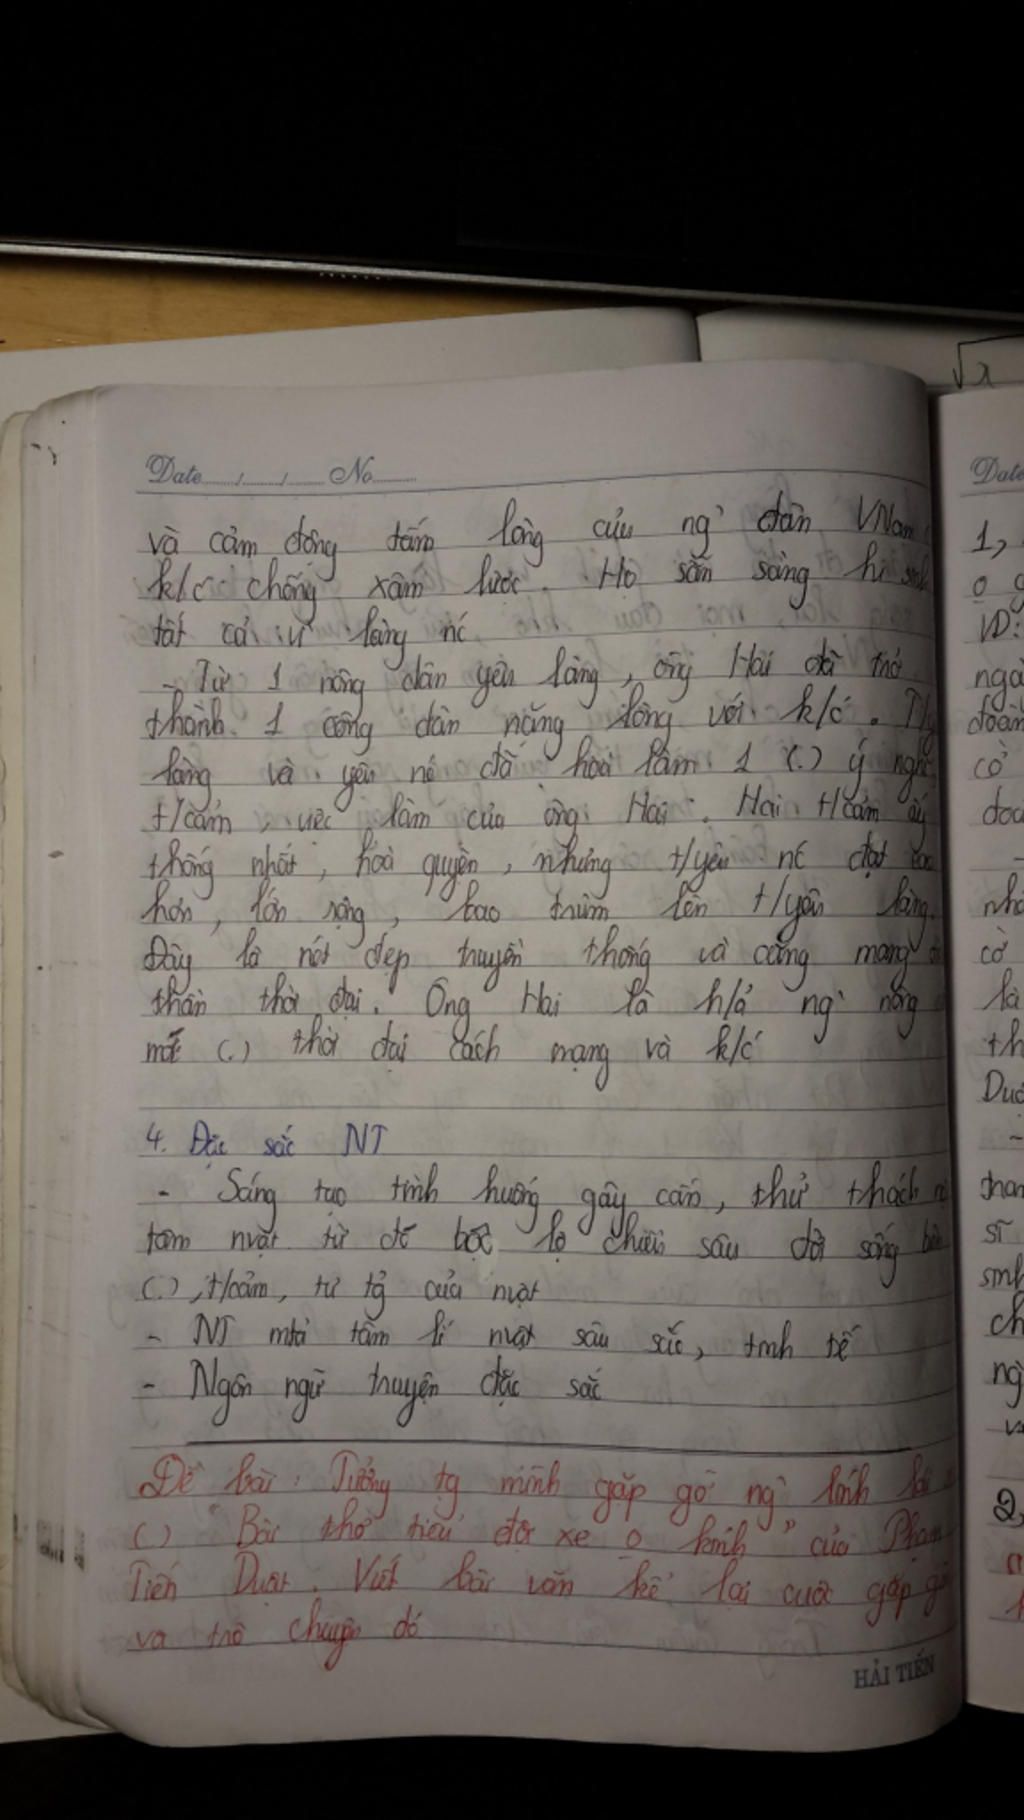 √x
Date...../...../...... No.........
và cảm động tấm lòng của ng` dân VNam
k/c chống xâm lược. Họ sẵn sàng hi sinh
tất cả vì làng nc
- Từ 1 nông dân yêu làng, ông Hai đã trở
thành 1 công dân nặng lòng với k/c. T/y
làng và yêu nc đã hoà làm 1 (.) ý nghĩ
t/cảm, việc làm của ông Hai. Hai t/cảm ấy
thống nhất, hoà quyện, nhưng t/yêu nc đạt cao
hơn, lớn rộng, bao trùm lên t/yêu làng.
Đây là nét đẹp truyền thống và cũng mang
thần thời đại. Ông Hai là h/ả ng` nông
mới (.) thời đại cách mạng và k/c
4. Đặc sắc NT
- Sáng tạo tình huống gây cấn, thử thách
tâm nvật từ đó bộc lộ chiều sâu đời sống bên
(.), t/cảm, tư tg của nvật
- NT mtả tâm lí nvật sâu sắc, tinh tế
- Ngôn ngữ truyện đặc sắc
Đề bài: Tưởng tg mình gặp gỡ ng` lính lái
(.) "Bài thơ tiểu đội xe o kính" của Phạm
Tiến Duật. Viết bài văn kể lại cuộc gặp gỡ
và trò chuyện đó
HẢI TIẾN
Date
1,
o
VD:
ngà
đoàn
cờ
đoà
nhà
cờ
là
th
Duậ
-
tham
sĩ
sinh
ch
ng`
và
2,